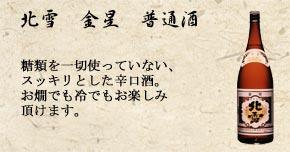 北雪　金星　普通酒
糖類を一切使っていない、
スッキリとした辛口酒。
お燗でも冷でもお楽しみ
頂けます。
北雪